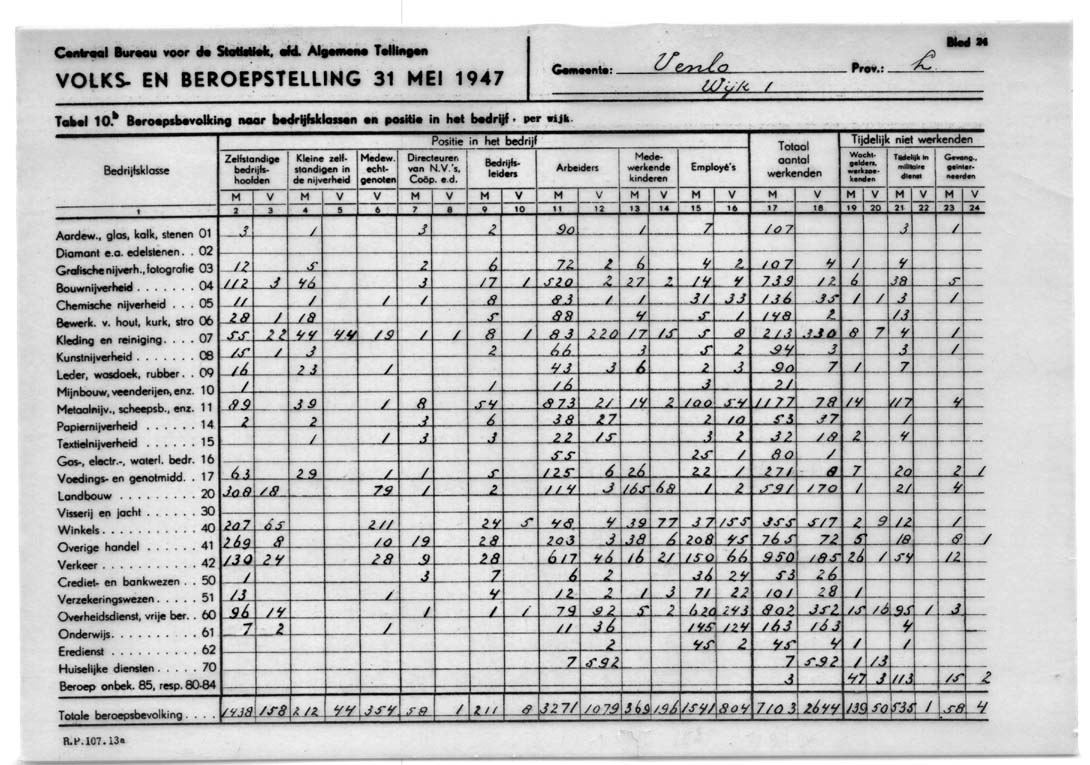 Centraal Bureau voor de Statistiek, afd. Algemene Tellingen
VOLKS- EN BEROEPSTELLING 31 MEI 1947
Blad 24
Gemeente: Venlo Prov.: L.
Wijk 1
Tabel 10.b Beroepsbevolking naar bedrijfsklassen en positie in het bedrijf, per wijk.
Bedrijfsklasse Positie in het bedrijf Totaal aantal werkenden Tijdelijk niet werkenden
Zelfstandige bedrijfshoofden Kleine zelfstandigen in de nijverheid Medew. echtgenoten Directeuren van N.V.'s, Coöp. e.d. Bedrijfsleiders Arbeiders Medewerkende kinderen Employé's Wachtgelders, werkzoekenden Tijdelijk in militaire dienst Gevang., geïnterneerden
M V M V V M V M V M V M V M V M V M V M V M V
1 2 3 4 5 6 7 8 9 10 11 12 13 14 15 16 17 18 19 20 21 22 23 24
Aardew., glas, kalk, stenen 01 3 1 3 2 90 1 7 107 3 1
Diamant e.a. edelstenen. . 02
Grafische nijverh., fotografie 03 12 5 2 6 72 2 6 4 2 107 4 1 4
Bouwnijverheid . . . . . . . 04 112 3 46 3 17 1 520 2 27 2 14 4 739 12 6 38 5
Chemische nijverheid . . . 05 11 1 1 1 8 83 1 1 31 33 136 35 1 1 3 1
Bewerk. v. hout, kurk, stro 06 28 1 18 5 88 4 5 1 148 2 13
Kleding en reiniging. . . . . 07 55 22 44 44 19 1 1 8 1 83 220 17 15 5 8 213 330 8 7 4 1
Kunstnijverheid . . . . . . . 08 15 1 3 2 66 3 5 2 94 3 3 1
Leder, wasdoek, rubber. . 09 16 23 1 43 3 6 2 3 90 7 1 7
Mijnbouw, veenderijen, enz. 10 1 1 16 3 21
Metaalnijv., scheepsb., enz. 11 89 39 1 8 54 873 21 14 2 100 54 1177 78 14 117 4
Papiernijverheid . . . . . . 14 2 2 3 6 38 27 2 10 53 37 1
Textielnijverheid . . . . . . 15 1 1 3 3 22 15 3 2 32 18 2 4
Gas-, electr.-, waterl. bedr. 16 55 25 1 80 1
Voedings- en genotmidd. . 17 63 29 1 1 5 125 6 26 22 1 271 8 7 20 2 1
Landbouw . . . . . . . . . 20 308 18 79 1 2 114 3 165 68 1 2 591 170 1 21 4
Visserij en jacht . . . . . . 30
Winkels . . . . . . . . . . 40 207 65 211 24 5 48 4 39 77 37 155 355 517 2 9 12 1
Overige handel . . . . . . 41 269 8 10 19 28 203 3 38 6 208 45 765 72 5 18 8 1
Verkeer . . . . . . . . . . 42 130 24 28 9 28 617 46 16 21 150 66 950 185 26 1 54 12
Crediet- en bankwezen . . 50 1 3 7 6 2 36 24 53 26
Verzekeringswezen . . . . . 51 13 1 4 12 2 1 3 71 22 101 28 1
Overheidsdienst, vrije ber. . 60 96 14 1 1 1 79 92 5 2 620 243 802 352 15 16 95 1 3
Onderwijs. . . . . . . . . . 61 7 2 1 11 36 145 124 163 163 4
Eredienst . . . . . . . . . 62 2 45 2 45 4 1 1
Huiselijke diensten . . . . . 70 7 592 7 592 1 13
Beroep onbek. 85, resp. 80-84 3 47 3 113 15 2
Totale beroepsbevolking . . . . 1438 158 212 44 354 58 1 211 8 3271 1079 369 196 1541 804 7103 2644 139 50 535 1 58 4
R.P.107.13a